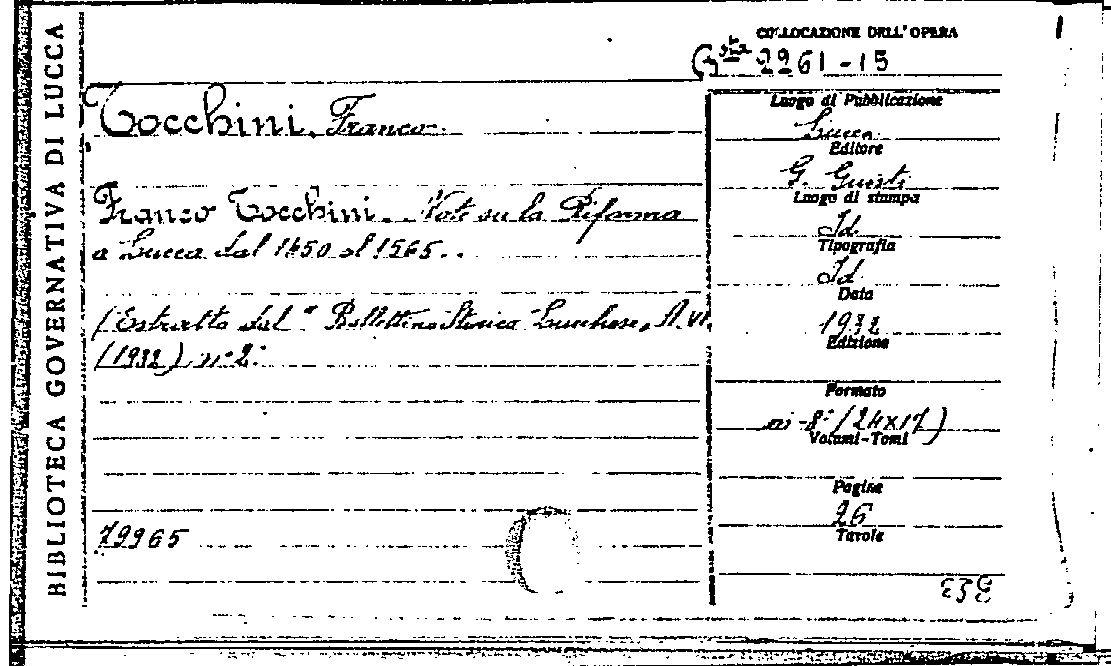 BIBLIOTECA GOVERNATIVA DI LUCCA
COLLOCAZIONE DELL'OPERA
Bsta 2261-15
Tocchini, Franco.
Franco Tocchini. Note su la Riforma
a Lucca dal 1450 al 1565..
(Estratto dal "Bollettino Storico Lucchese, A. VI.
(1932) n. 2.
79965
Luogo di Pubblicazione
Lucca
Editore
G. Giusti
Luogo di stampa
Id.
Tipografia
Id.
Data
1932
Edizione
Formato
in-8° (24x17)
Volumi-Tomi
Pagine
26
Tavole